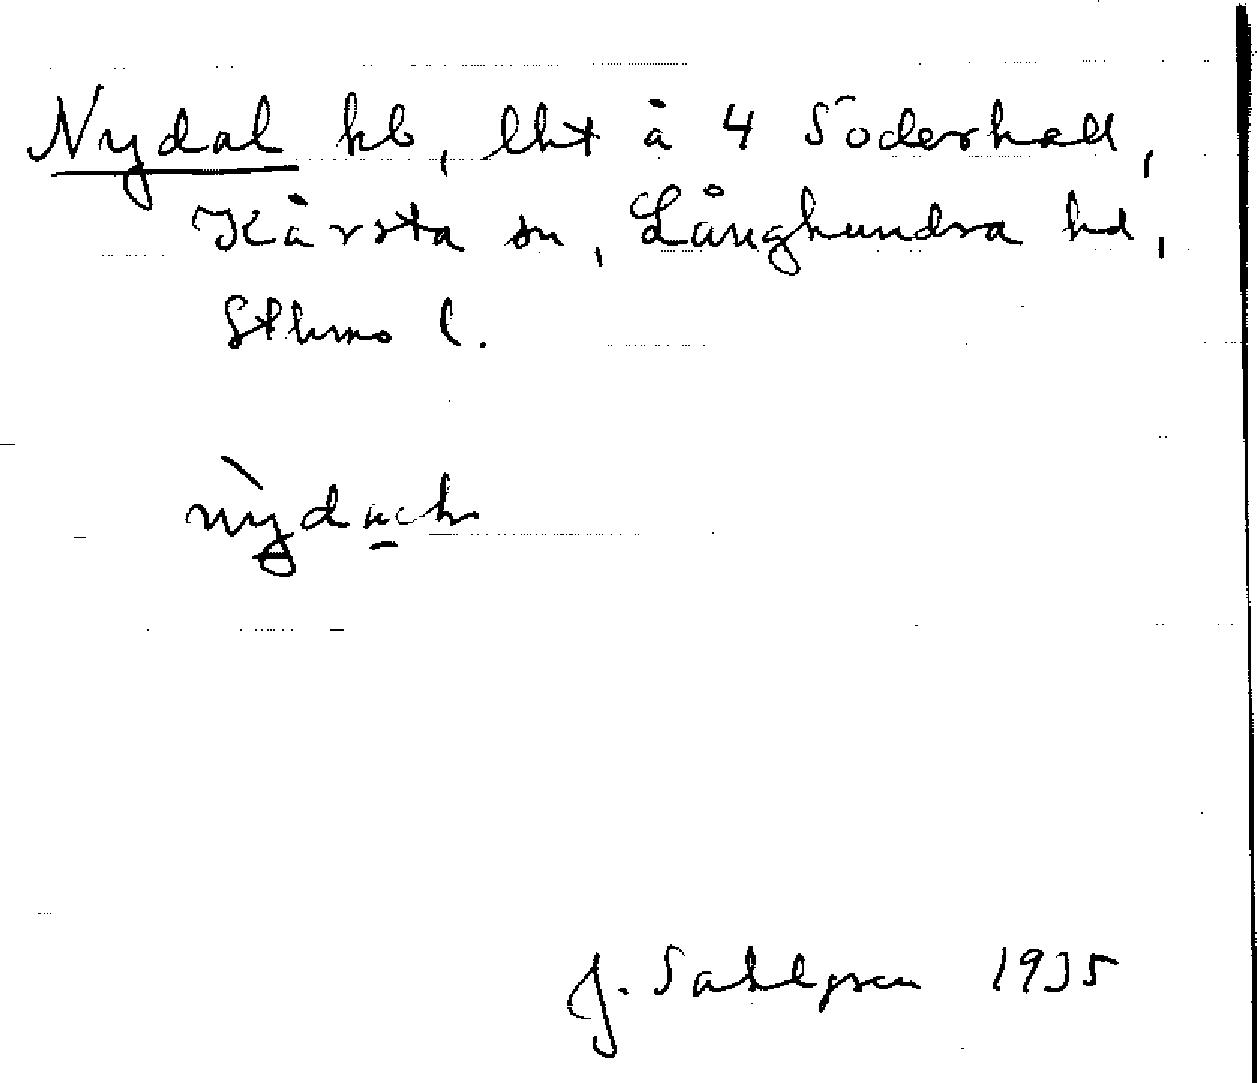 Nydal hb, lht å 4 Söderhall,
Kårsta sn, Långhundra hd,
Sthms l.
J. Sahlgren 1935